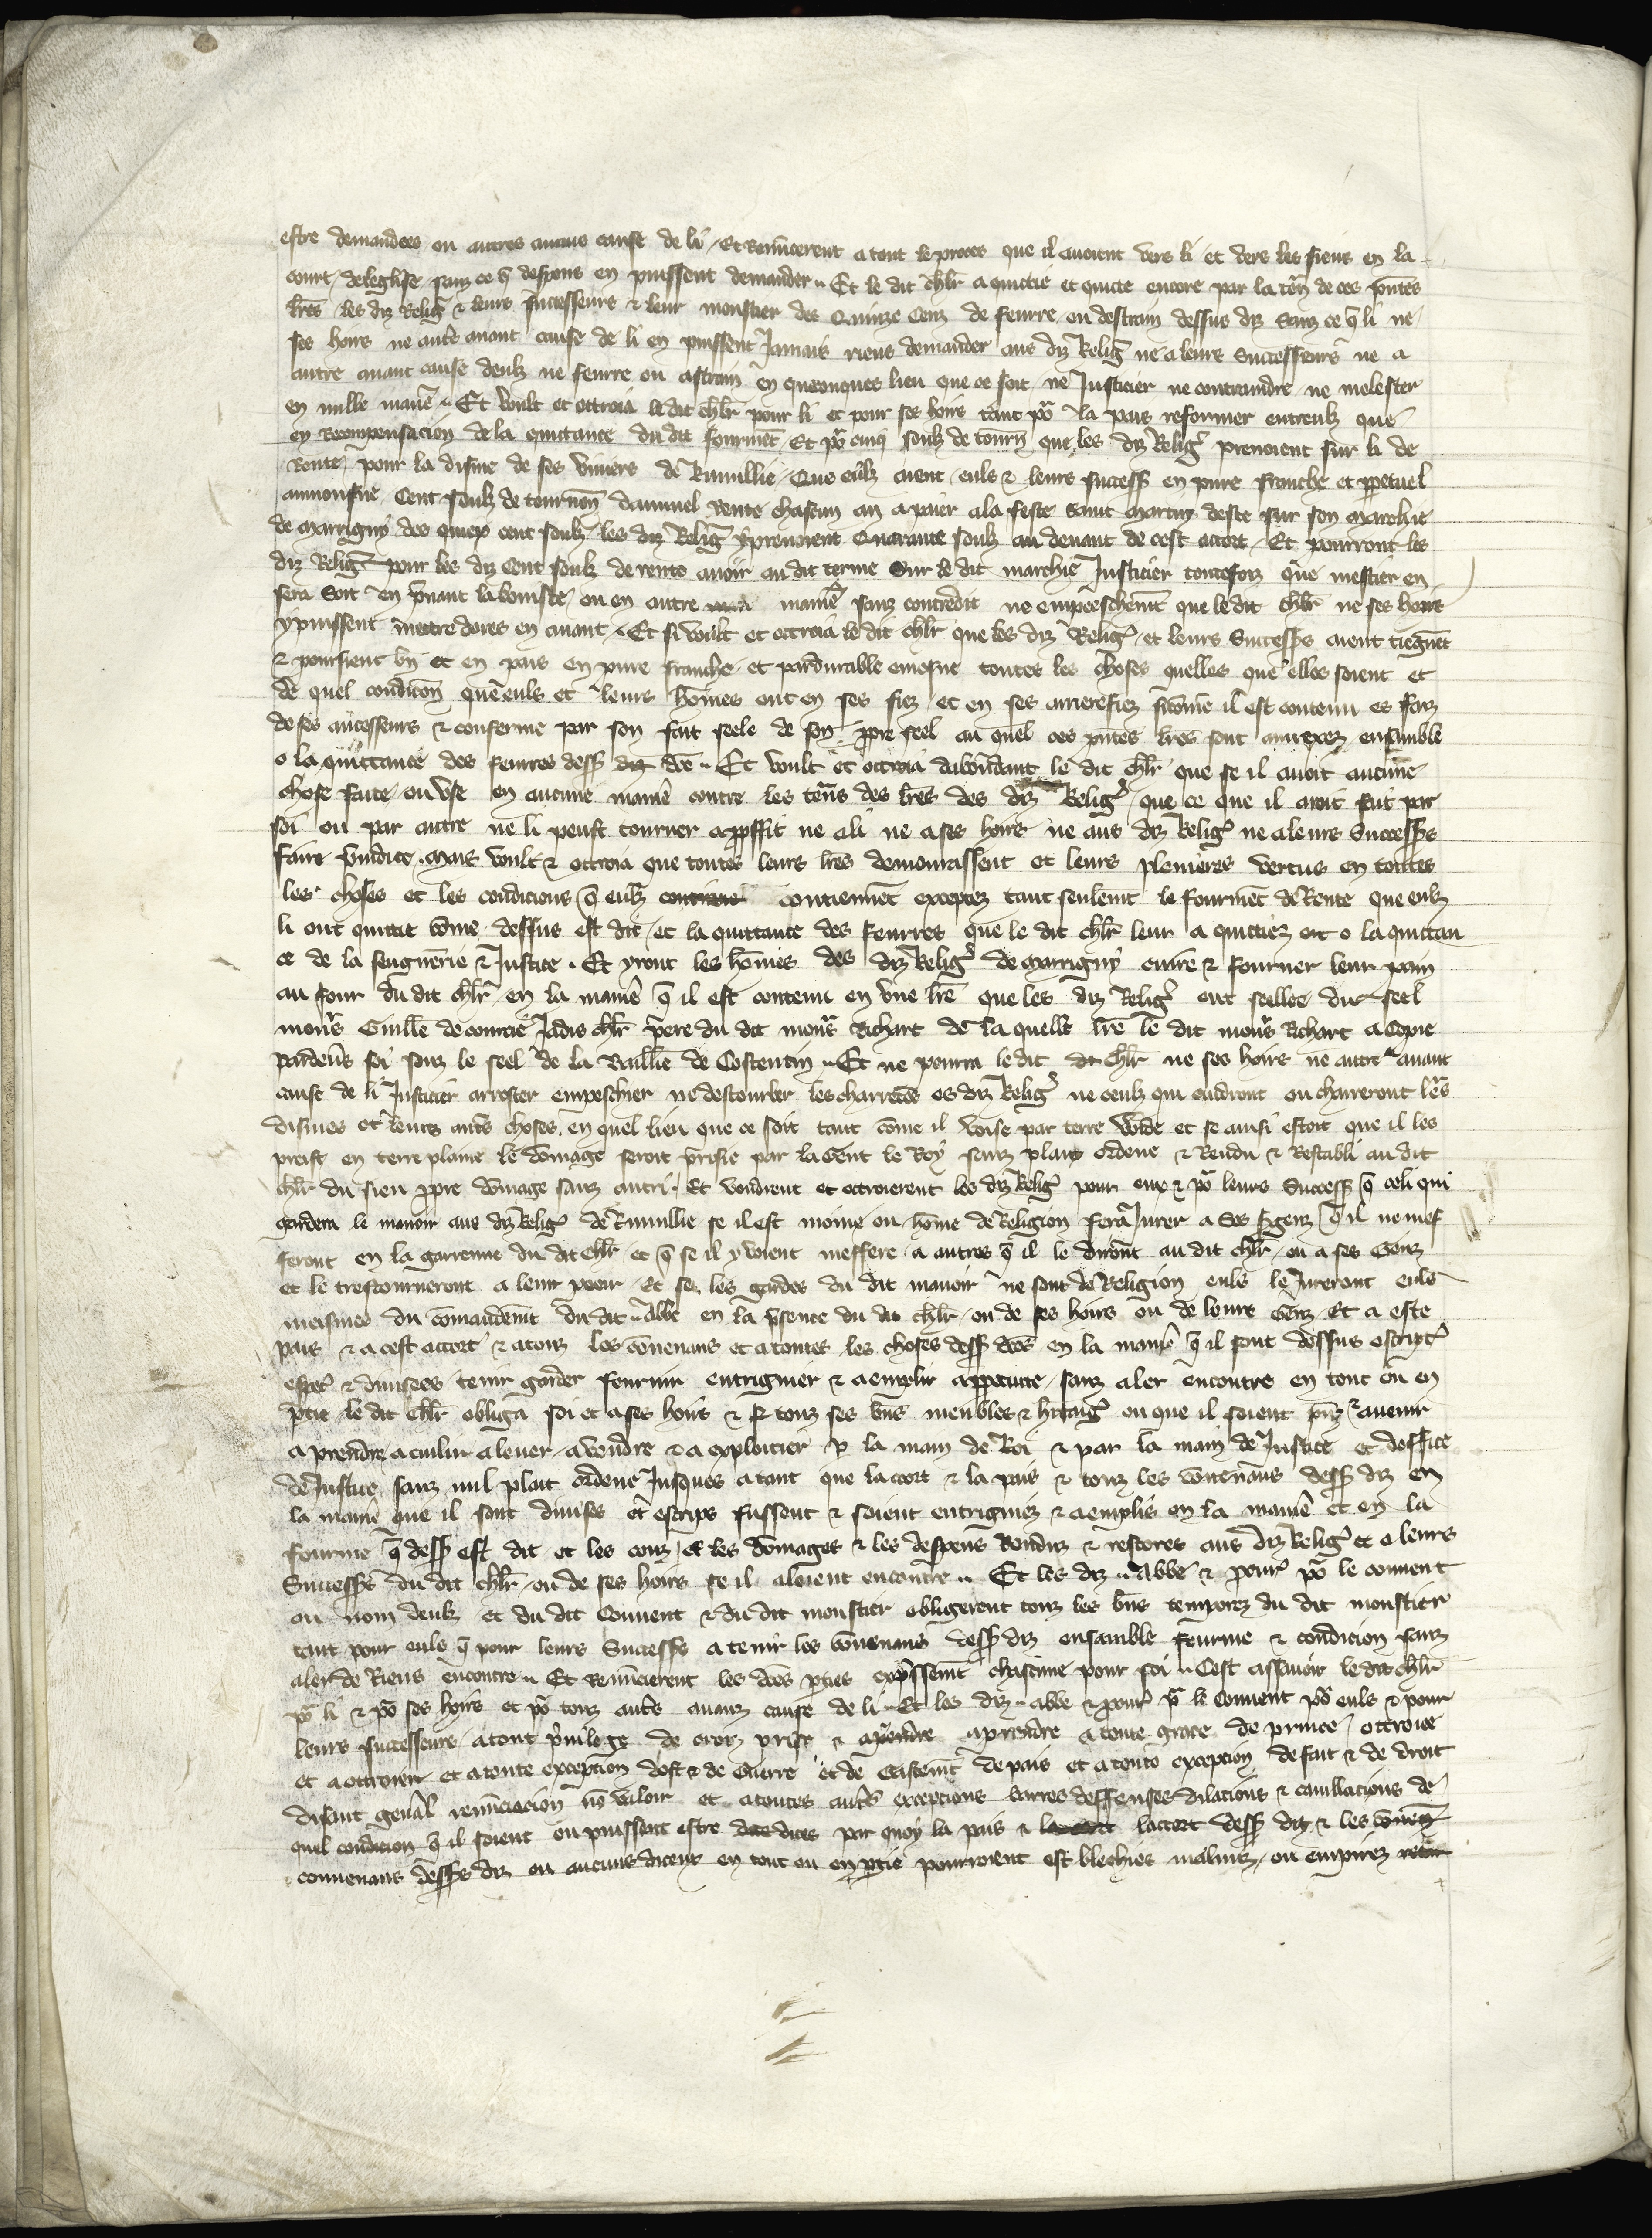 estre demandees ou autres aiauns cause de li Et Renuncerent a tout le proces que il avoient vers li et vers les siens en la
court deleglise sanz ce q̃ despens en puissent demander Et le dit chlr̃ a quittie et quicte encore par la ten̄ de ces p̃ntes
lr̃es les diz Relig̃ & leurs successeurs & leur moustier des Quinze Cenz de feurre ou destrain dessus diz Sanz ce q̃ li ne
ses hoirs ne autr̃e aiant cause de li en puissent Jamais riens demander aus diz Relig̃ ne a leurs Successeurs ne a
autre aiant cause deulz ne feurre ou astrain en quecunques lieu que ce soit ne Justicier ne contraindre ne molester
en nulle manie᷑ Et voult et ottroia le dit chlr̃ pour li et pour ses hoirs tant po᷑ la pais reformer entreulz que
en Recompensacion de la quittance du dit fourmēt Et po᷑ cinq soulz de tourn̄ que les diz Relig̃ prenoient sur li de
Rente pour la disme de ses viviers de Rumillie Que eulz aient euls & leurs success̃ en pure franche et ppetuel
aumosne Cent soulz de tournois dannuel Rente chascun an a paier a la feste Saint Martin deste sur son marchie
de Marrigny des quiex cent soulz les diz Relig̃ y prenoient Quarante soulz au devant de cest accort Et pourront les
diz Relig̃ pour les diz Cent soulz de rente avoir au dit terme Sur le dit marchie Justicier toutesfoiz que mestier en
sera Soit en p̃nant la boiste ou en autre manie᷑ sanz contredit ne empeeschem̄t que le dit chlr̃ ne ses hoirs
y puissent mettre dores en avant Et si voult et ottroia le dit chlr̃ que les diz Relig̃ et leurs Success̃s aient tiegnēt
& poursient bn̄ et en pais en pure franche et pardurable emosne toutes les choses quelles que elles soient et
de quel condicōn que euls et leurs hōmes ont en ses fiez et en ses arrierefiez si cōme il est contenu es faiz
de ses ancesseurs & conferme par son fait seele de son ppre seel au quel ces p̃ntes lr̃es sont annexez ensamble
o la quittance des feurres dess̃ dc̄e Et voult et ottroia dabondant le dit chlr̃ que se il avoit aucune
chose faite ou use en aucune manie᷑ contre les ten̄s des lr̃es des diz Relig̃ que ce que il aroit fait par
soi ou par autre ne li peust tourner a pffit ne a li ne a ses hoirs ne aus diz Relig̃ ne a leurs Success̃s
faire p̃iudice mais voult & ottroia que toutes leurs lr̃es demourassent et leurs plenieres vertus en toutes
les choses et les condicions q̃ eulz contiennēt exceptez tant seulem̄t le fourmēt de Rente que eulz
li ont quittie cōme dessus est dit et la quittance des feurres que le dit chlr̃ leur a quittiez et o la quittan
ce de la seigneurie & Justice Et yront les hōmes des diz Relig̃ de Marrigny cuire & fourner leur pain
au four du dit chlr̃ en la manie᷑ q̃ il est contenu en une lr̃e que les diz Relig̃ ont seellee du seel
mons᷑ Guill̄e de courcie Jadis chlr̃ pere du dit mons᷑ Richart de la quelle lr̃e le dit mons᷑ Richart a Copie
pardevs̄ soi souz le seel de la Baillie de Costentin Et ne pourra le dit chlr̃ ne ses hoirs ne autre aiant
cause de li Justicier arrester empeschier ne destourber les charretes es diz Relig̃ ne ceulz qui cuidront ou charreront le᷑s
dismes et leurs aut᷑s choses en quel lieu que ce soit tant cōme il voise par terre voide et se ainsi estoit que il les
preist en terre plaine le dōmage seroit p̃risie par la Gent le Roy sanz plait ordene & Rendu & Restabli au dit
chlr̃ du sien ppre dōmage sanz autri Et voudrent et ottroierent les diz Relig̃ pour eux & po᷑ leurs Success̃ q̃ celi qui
gardera le manoir aus diz Relig̃ de Rumillie se il est moine ou hōme de Religion fera Jurer a Ses Sergenz q̃ il ne mef
feront en la garrenne du dit chlr̃ et q̃ se il y voient meffere a autres q̃ il le diront au dit chlr̃ ou a ses Genz
et le trestourneront a leur pooir Et se les gardes du dit manoir ne sont de Religion euls le Jureront euls
meismes du cōmandem̄t du dit Abbe en la p̃sence du dit chlr̃ ou de ses hoirs ou de leurs Genz Et a este
pais & a cest accort & a touz les cōvenans et a toutes les choses dess̃ dc̄es en la manie᷑ q̃ il sont dessus escript᷑
& divisees tenir garder fournir entriguier & aemplir a ppetuite sanz aler encontre en tout ou en
ptie le dit chlr̃ obliga soi et a ses hoirs & touz ses bn̄s meubles & hritag᷑ ou que il soient pn̄z & avenir
a prendre a cuilur a lever a vendre & a exploitier p la main de Roi & par la main de Justice et doffice
de Justice sanz nul plait ordene Jusques a tant que lacort & la pais & touz les cōvenans dess̃ diz en
la manie᷑ que il sont divises et escrips fussent & soient entriguiez & aemplis en la manie᷑ et en la
fourme q̃ dess̃ est dit et les couz et les dōmages & les despens Renduz & restores aus diz Relig̃ et a leurs
Success̃s du dit chlr̃ ou de ses hoirs se il aloient encontre Et les diz Abbe & pour po᷑ le couvent
ou nom deulz et du dit Couvent & du dit moustier obligerent touz les bn̄s temporez du dit moustier
tant pour euls q̃ pour leurs Success̃s a tenir les cōvenans dess̃ diz ensamble fourme & condicion sanz
aler de Riens encontre Et renuncierent les dc̄es pties expssem̄t chascune pour soi Cest assavoir le dit chlr̃
po᷑ li & po᷑ ses hoirs et po᷑ touz aut᷑s aianz cause de li Et les diz abbe & pour po᷑ le Couvent po᷑ euls & pour
leurs successeurs a tout p̃vilege de croiz prise & a prendre a toute grace de prince ottroiee
et a ottroier et a toute excepcion dost & de Guerre et de Gastem̄t de pais et a toute excepcion de fait & de droit
disant gen̄al renūciacion nō valoir et a toutes aut᷑s excepcions barres deffenses dilacions & cavillacions de
quel condicion q̃ il soient ou puissent estre dites par quoy la pais & laccort dess̃ diz & les
convenans dess̃s diz ou aucuns diceux en tout ou en ptie pourroient estr̃ blechies malmiz ou empirez